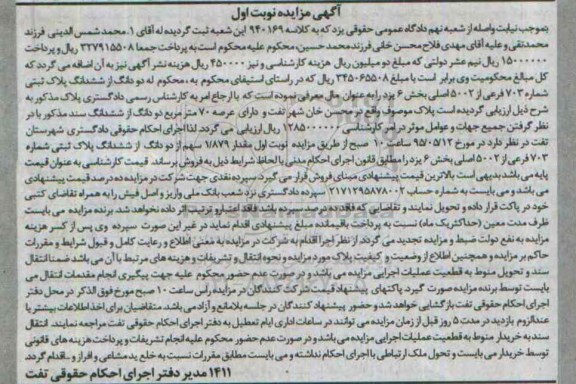 آگهی مزایده نوبت اول
بموجب نیابت واصله از شعبه نهم دادگاه عمومی حقوقی یزد که به کلاسه ۹۴۰۱۶۹ این شعبه ثبت گردیده له آقای ۱. محمد شمس الدینی فرزند
محمدتقی و علیه آقای مهدی فلاح محسن خانی فرزند محمد حسین، محکوم علیه محکوم است به پرداخت جمعا ۳۲۷۹۱۵۵۰۸ ریال و پرداخت
۱۵۰۰۰۰۰۰ ریال نیم عشر دولتی که مبلغ دو میلیون ریال هزینه کارشناسی و نیز ۴۵۰۰۰۰ ریال هزینه نشر آگهی نیز به آن اضافه می گردد که
کل مبالغ محکومیت وی برابر است با مبلغ ۳۴۵۰۶۵۵۰۸ ریال که در راستای استیفای محکوم به، محکوم له دو دانگ از ششدانگ پلاک ثبتی
شماره ۷۰۳ فرعی از ۵۰۰۲ اصلی بخش ۶ یزد را به عنوان مال معرفی نموده است که با ارجاع امر به کارشناس رسمی دادگستری پلاک مذکور به
شرح ذیل ارزیابی گردیده است پلاک موصوف واقع در محسن خان شهر تفت و دارای عرصه ۷۰ متر مربع دو دانگ از ششدانگ سند مذکور با در
نظر گرفتن جمیع جهات و عوامل موثر در امر کارشناسی ۱۲۸۵۰۰۰۰۰ ریال ارزیابی می گردد. لذا اجرای احکام حقوقی دادگستری شهرستان
تفت در نظر دارد در مورخ ۹۵/۰۵/۱۲ ساعت ۱۰ صبح از طریق مزایده نوبت اول مقدار ۱/۸۷۹ سهم از دو دانگ از ششدانگ پلاک ثبتی شماره
۷۰۳ فرعی از ۵۰۰۲ اصلی بخش ۶ یزد را مطابق قانون اجرای احکام مدنی با لحاظ شرایط ذیل به فروش برساند. قیمت کارشناسی به عنوان قیمت
پایه می باشد بدیهی است بالاترین قیمت پیشنهادی مبنای فروش قرار می گیرد. سپرده نقدی جهت شرکت در مزایده ده درصد قیمت پیشنهادی
می باشد و می بایست به شماره حساب ۲۱۷۱۲۹۵۸۷۸۰۰۲ سپرده دادگستری نزد شعب بانک ملی واریز و اصل فیش را به همراه تقاضای کتبی
خود در پاکت قرار داده و تحویل نمایند و تقاضایی که فاقد ده درصد سپرده باشد فاقد اعتبار و ترتیب اثر داده نخواهد شد. برنده مزایده می بایست
ظرف مدت معین (حداکثر یک ماه) نسبت به پرداخت باقیمانده مبلغ پیشنهادی اقدام نماید در غیر این صورت سپرده وی پس از کسر هزینه
مزایده به نفع دولت ضبط و مزایده تجدید می گردد. از نظر اجرا اقدام به شرکت در مزایده به معنی اطلاع و رعایت کامل و قبول شرایط و مقررات
حاکم بر مزایده و همچنین اطلاع از وضعیت و کیفیت پلاک مورد مزایده و نحوه انتقال و تشریفات و هزینه های مرتبط با آن می باشد ضمنا انتقال
سند و تحویل منوط به قطعیت عملیات اجرایی مزایده می باشد و در صورت عدم حضور محکوم علیه جهت پیگیری انجام مقدمات انتقال می
بایست توسط برنده مزایده صورت گیرد. پاکتهای پیشنهاد قیمت شرکت کنندگان در مزایده راس ساعت ۱۰ صبح مورخ فوق الذکر در محل دفتر
اجرای احکام حقوقی تفت بازگشایی خواهد شد و حضور پیشنهاد کنندگان در جلسه بلامانع و آزاد می باشد. متقاضیان برای اخذ اطلاعات بیشتر یا
عندالزوم بازدید در مدت ۵ روز قبل از زمان مزایده می توانند در ساعات اداری ایام تعطیل به دفتر اجرای احکام حقوقی تفت مراجعه نمایند. انتقال
سند به خریدار منوط به قطعیت عملیات اجرایی مزایده می باشد و در صورت عدم حضور محکوم علیه انجام تشریفات و پرداخت هزینه های قانونی
توسط خریدار می بایست و تحویل ملک ارتباطی با اجرای احکام نداشته و می بایست مطابق مقررات نسبت به خلع ید مشاعی و افراز و ... اقدام گردد.
۱۴۱۱ مدیر دفتر اجرای احکام حقوقی تفت